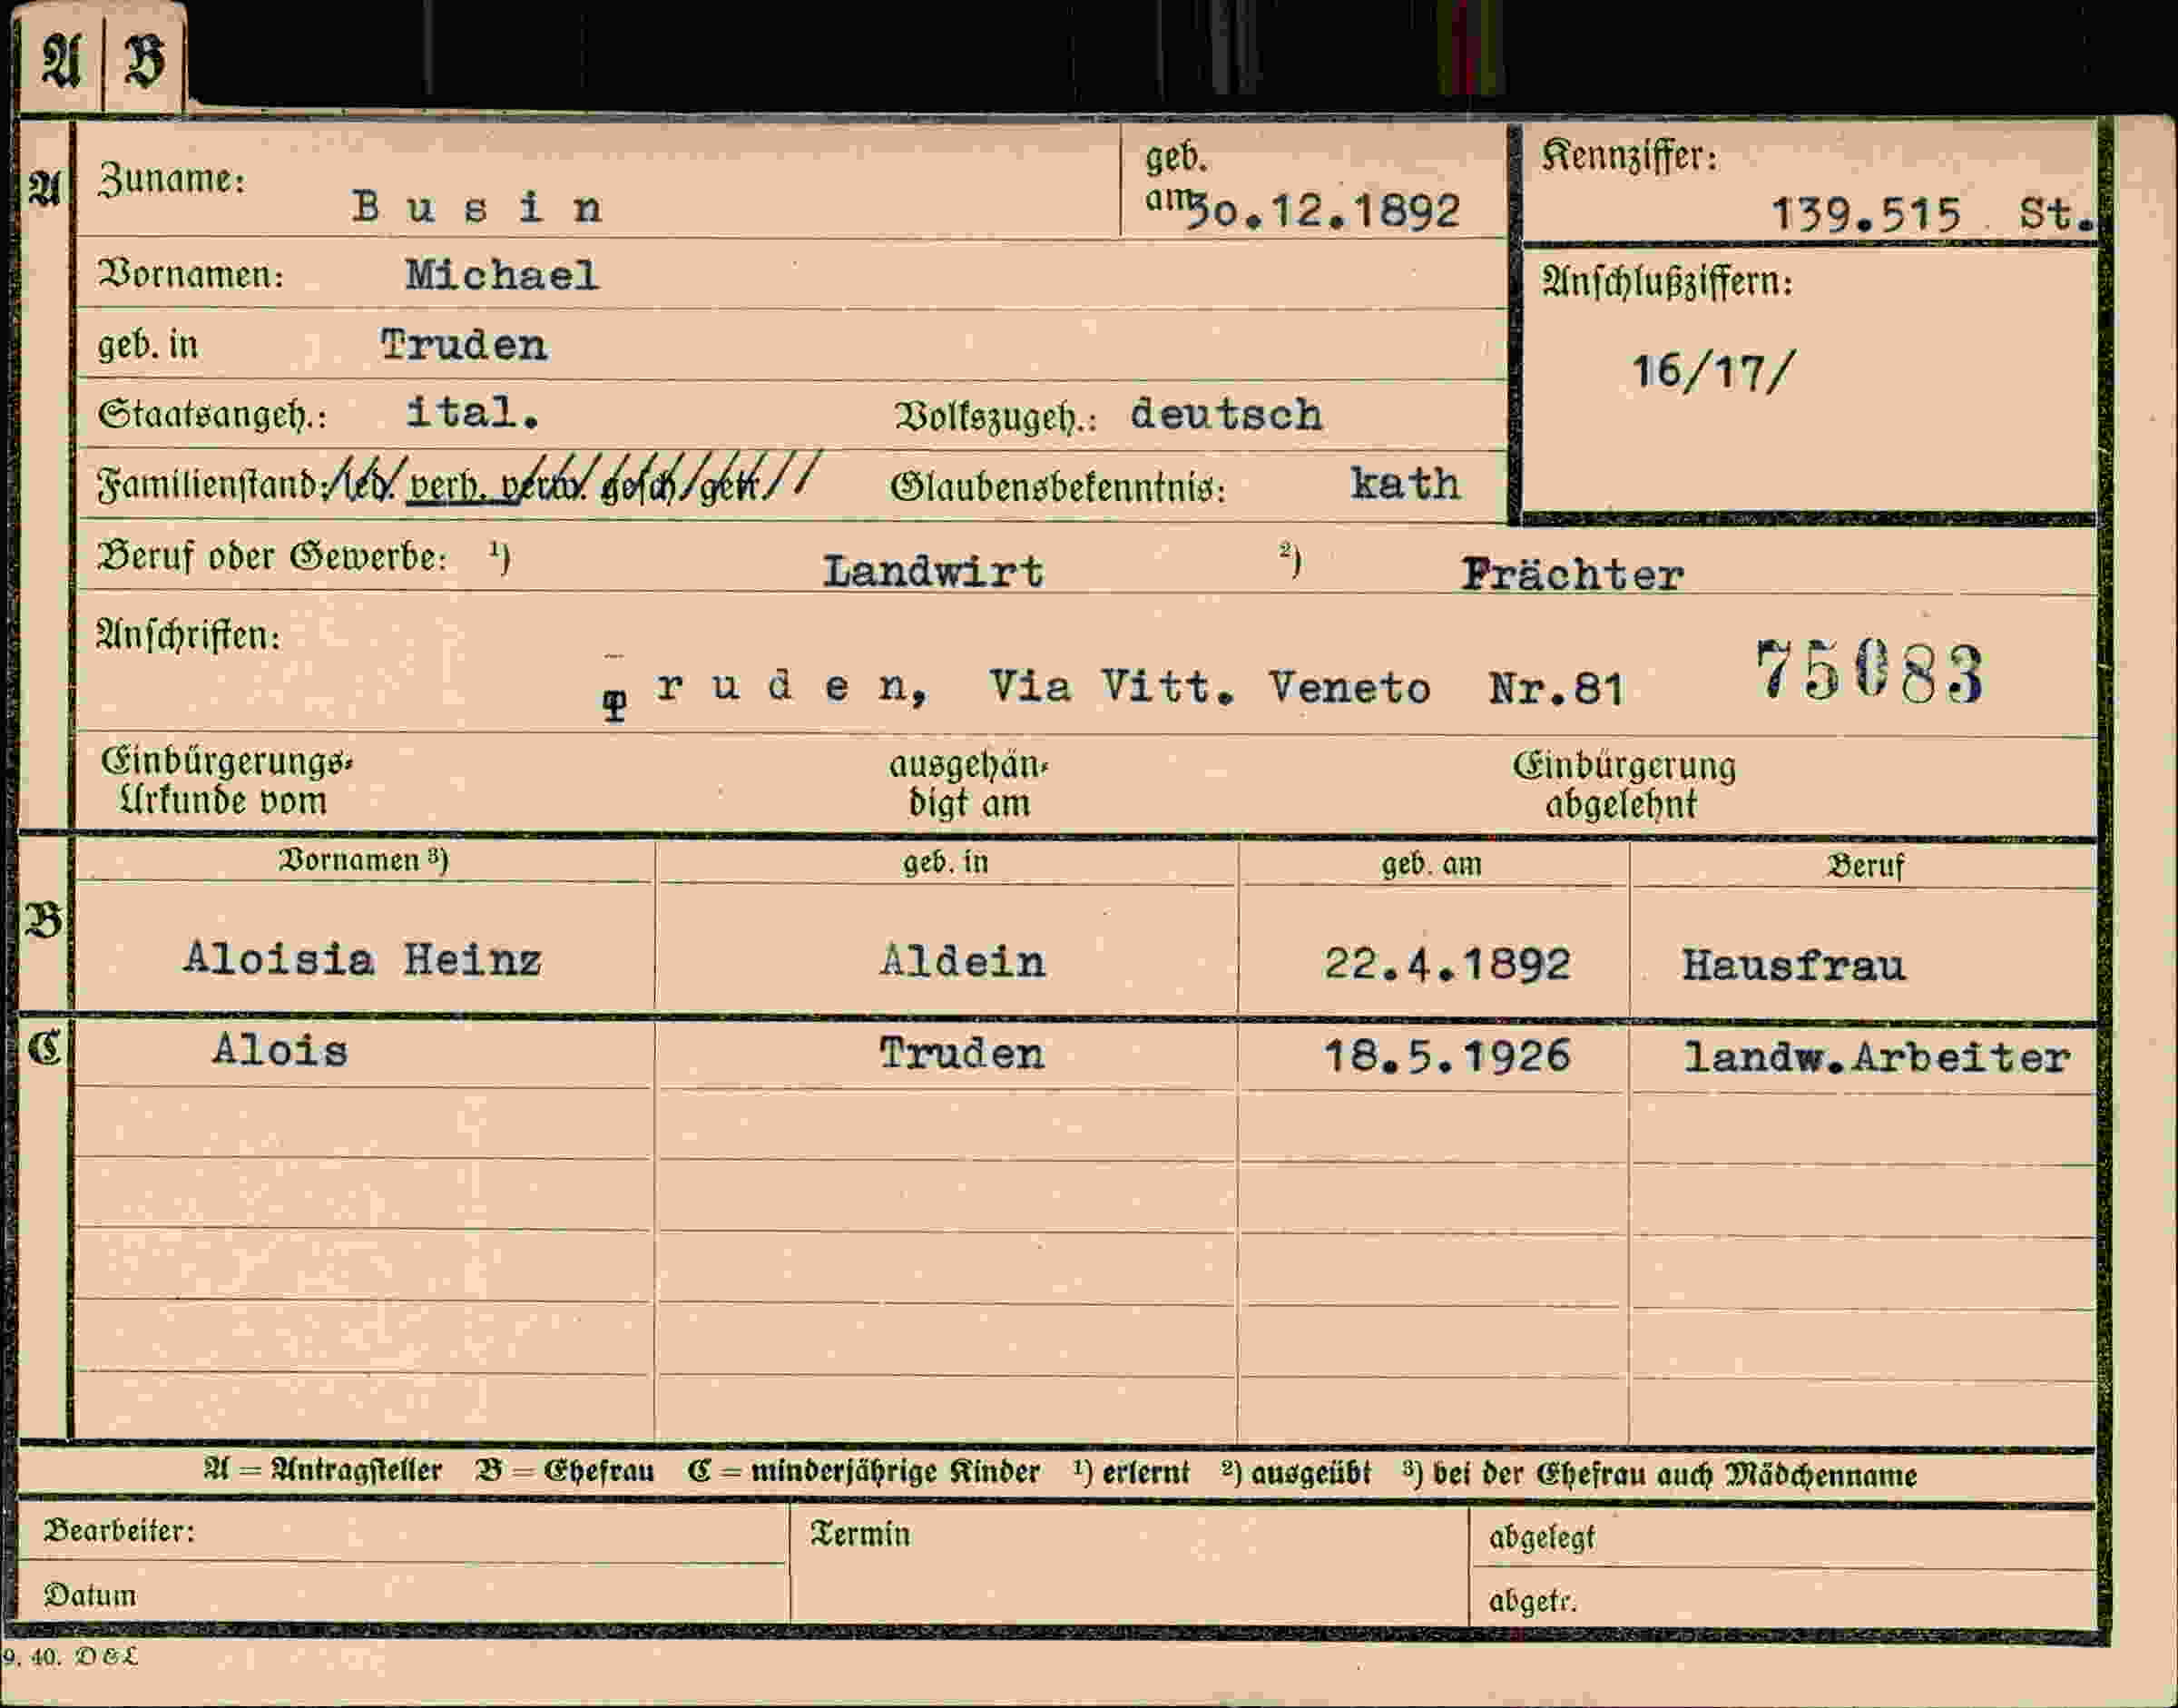 A B
A Zuname: Busin geb. am 30.12.1892 Kennziffer: 139.515 St.
Vornamen: Michael Anschlußziffern:
geb. in Truden 16/17/
Staatsangeh.: ital. Volkszugeh.: deutsch
Familienstand: led. verh. verw. gesch. getr. Glaubensbekenntnis: kath
Beruf oder Gewerbe: 1) Landwirt 2) Frächter
Anschriften:
Truden, Via Vitt. Veneto Nr.81 75083
Einbürgerungs- ausgehän- Einbürgerung
Urkunde vom digt am abgelehnt
Vornamen 3) geb. in geb. am Beruf
B Aloisia Heinz Aldein 22.4.1892 Hausfrau
C Alois Truden 18.5.1926 landw.Arbeiter
A = Antragsteller B = Ehefrau C = minderjährige Kinder 1) erlernt 2) ausgeübt 3) bei der Ehefrau auch Mädchenname
Bearbeiter: Termin abgelegt
Datum abgetr.
9. 40. D & L